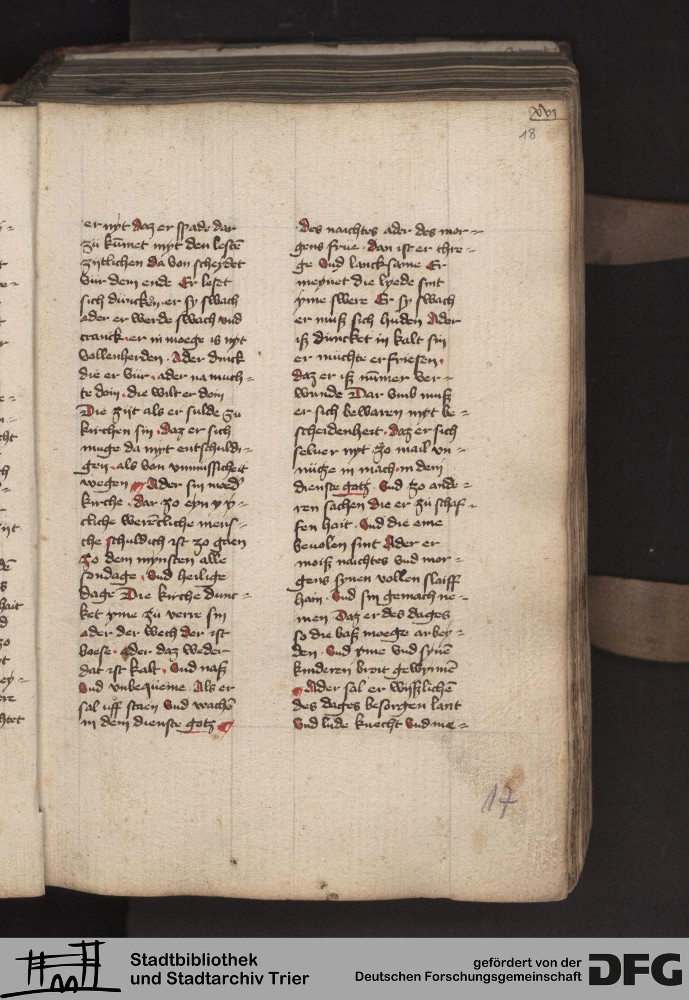 xvi
18
er nyt daz er spade dar
zů kům̄et myt den lestē
zijtlichen da von scheydet
vur dem ende Er lest
sich duncken er sy swach
ader er werde swach vnd
cranck er in moege is nyt
vollenherden. Ader dunck
die er vur ader na much=
te doin die wilt er doin
Die zijt als er sulde zu
kirchen sin daz er sich
muge da myt entschuldi=
gen als von vnmüssicheit
wegen Ader sin
kirche dar zo eyn y
cliche werētliche mens=
che schuldich ist zo gaen
zo dem mynsten alle
sondage vnd heilige
dage Die kirche dunc=
ket yme zu verre sin
ader der wech der ist
boese. Ader daz weder
dat ist kalt. Vnd naß
vnd vnbequeme Als er
sal uff staen vnd wachē
in dem dienste gotz
des naichtes ader des mor=
gens frue. dan ist er thre=
ge Vnd lancksame Er
meynet die lyede sint
yme swere Er sy swach
er muß sich huden Ader
iß duncket in kalt sin
er muchte erfriesen.
daz er iß nūmer ver=
wunde Dar vmb muß
er sich bewaren myt be=
scheidenheit. daz er sich
selver nyt zo mail vn=
nütze in mach in dem
dienste gotz. Vnd zo ande=
ren sachen die er zu schaf=
fen hait. Vnd die eme
bevolen sint Ader er
moiß naichtes vnd mor=
gens synen vollen slaiff
hain. Vnd sin gemach ne=
men Daz er des dages
so die baß moege arbey=
den. Vnd yme vnd synē
kinderen broit gewynnē
Ader sal er wißlichē
des dages besorgen lant
Vnd lude knecht vnd me=
17
Stadtbibliothek
und Stadtarchiv Trier
gefördert von der
Deutschen Forschungsgemeinschaft
DFG